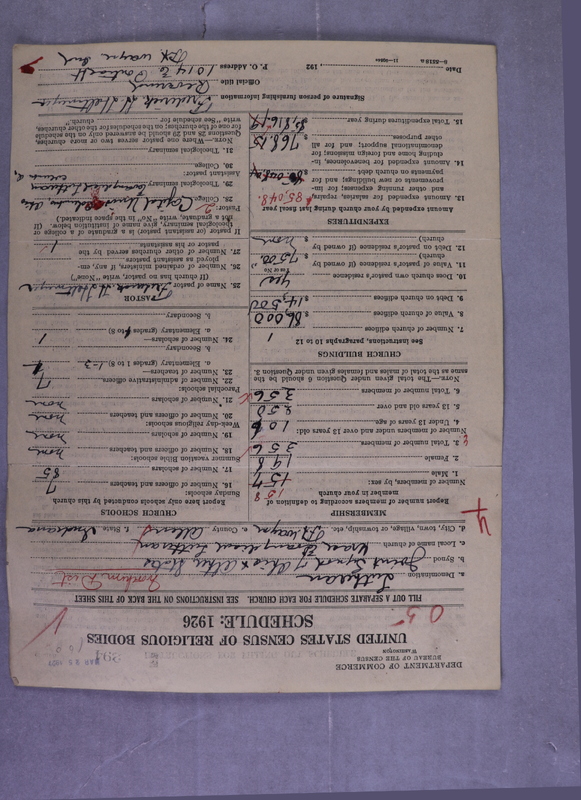 DEPARTMENT OF COMMERCE
BUREAU OF THE CENSUS
WASHINGTON
294
UNITED STATES CENSUS OF RELIGIOUS BODIES
SCHEDULE: 1926
FILL OUT A SEPARATE SCHEDULE FOR EACH CHURCH. SEE INSTRUCTIONS ON THE BACK OF THIS SHEET
a. Denomination Lutheran
b. Synod Joint Synod of Ohio & Other States
c. Local name of church Evangelical Lutheran
d. City, town, village, or township, etc. Ft Wayne c. County Allen f. State Indiana
4
MEMBERSHIP
Report number of members according to definition of member in your church
Number of members, by sex:
1. Male 158
2. Female 198
3. Total number of members 356
Number of members under and over 13 years old:
4. Under 13 years of age 106
5. 13 years old and over 250
6. Total number of members 356
NOTE.—The total given under Question 6 should be the same as the total of males and females given under Question 3.
CHURCH BUILDINGS
See instructions, paragraphs 10 to 12
7. Number of church edifices 1
8. Value of church edifices $ 86,000
9. Debt on church edifices $ 14,500
10. Does own church pastor's residence yes
(Yes or No)
11. Value of pastor's residence (if owned by church) $ 7500.
12. Debt on pastor's residence (if owned by church) $ none
EXPENDITURES
Amount expended by your church during last year
13. Amount expended for salaries, repairs, and other running expenses; for improvements or new buildings; and for payments on church debt
14. Amount expended for benevolences, including home and foreign missions; for denominational support; and for all other purposes 768.15
15. Total expenditures during year
CHURCH SCHOOLS
Report here only schools conducted by this church
Sunday schools:
16. Number of officers and teachers 7
17. Number of scholars 85
Summer vacation Bible schools:
18. Number of officers and teachers none
19. Number of scholars none
Week-day religious schools:
20. Number of officers and teachers none
21. Number of scholars none
Parochial schools:
22. Number of administrative officers
23. Number of teachers—
a. Elementary (grades 1 to 8)
b. Secondary
24. Number of scholars—
a. Elementary (grades 1 to 8)
b. Secondary
PASTOR
25. Name of pastor
(If church has no pastor, write "None")
26. Number of ordained ministers, if any, employed as assistant pastors
27. Number of other churches served by the pastor or his assistants 1
If pastor (or assistant pastor) is a graduate of a college or theological seminary, give name of institution below. (If not a graduate, write "No" in the place indicated).
Pastor:
28. College Capital
29. Theological seminary
Assistant pastor:
30. College
31. Theological seminary
NOTE.—Where one pastor serves two or more churches, Questions 28 and 29 should be answered only on the schedule for one of the churches; on the schedule for the other churches, write "See schedule for church."
Signature of person furnishing information
Official title
Date 192
P. O. Address Ft Wayne Ind